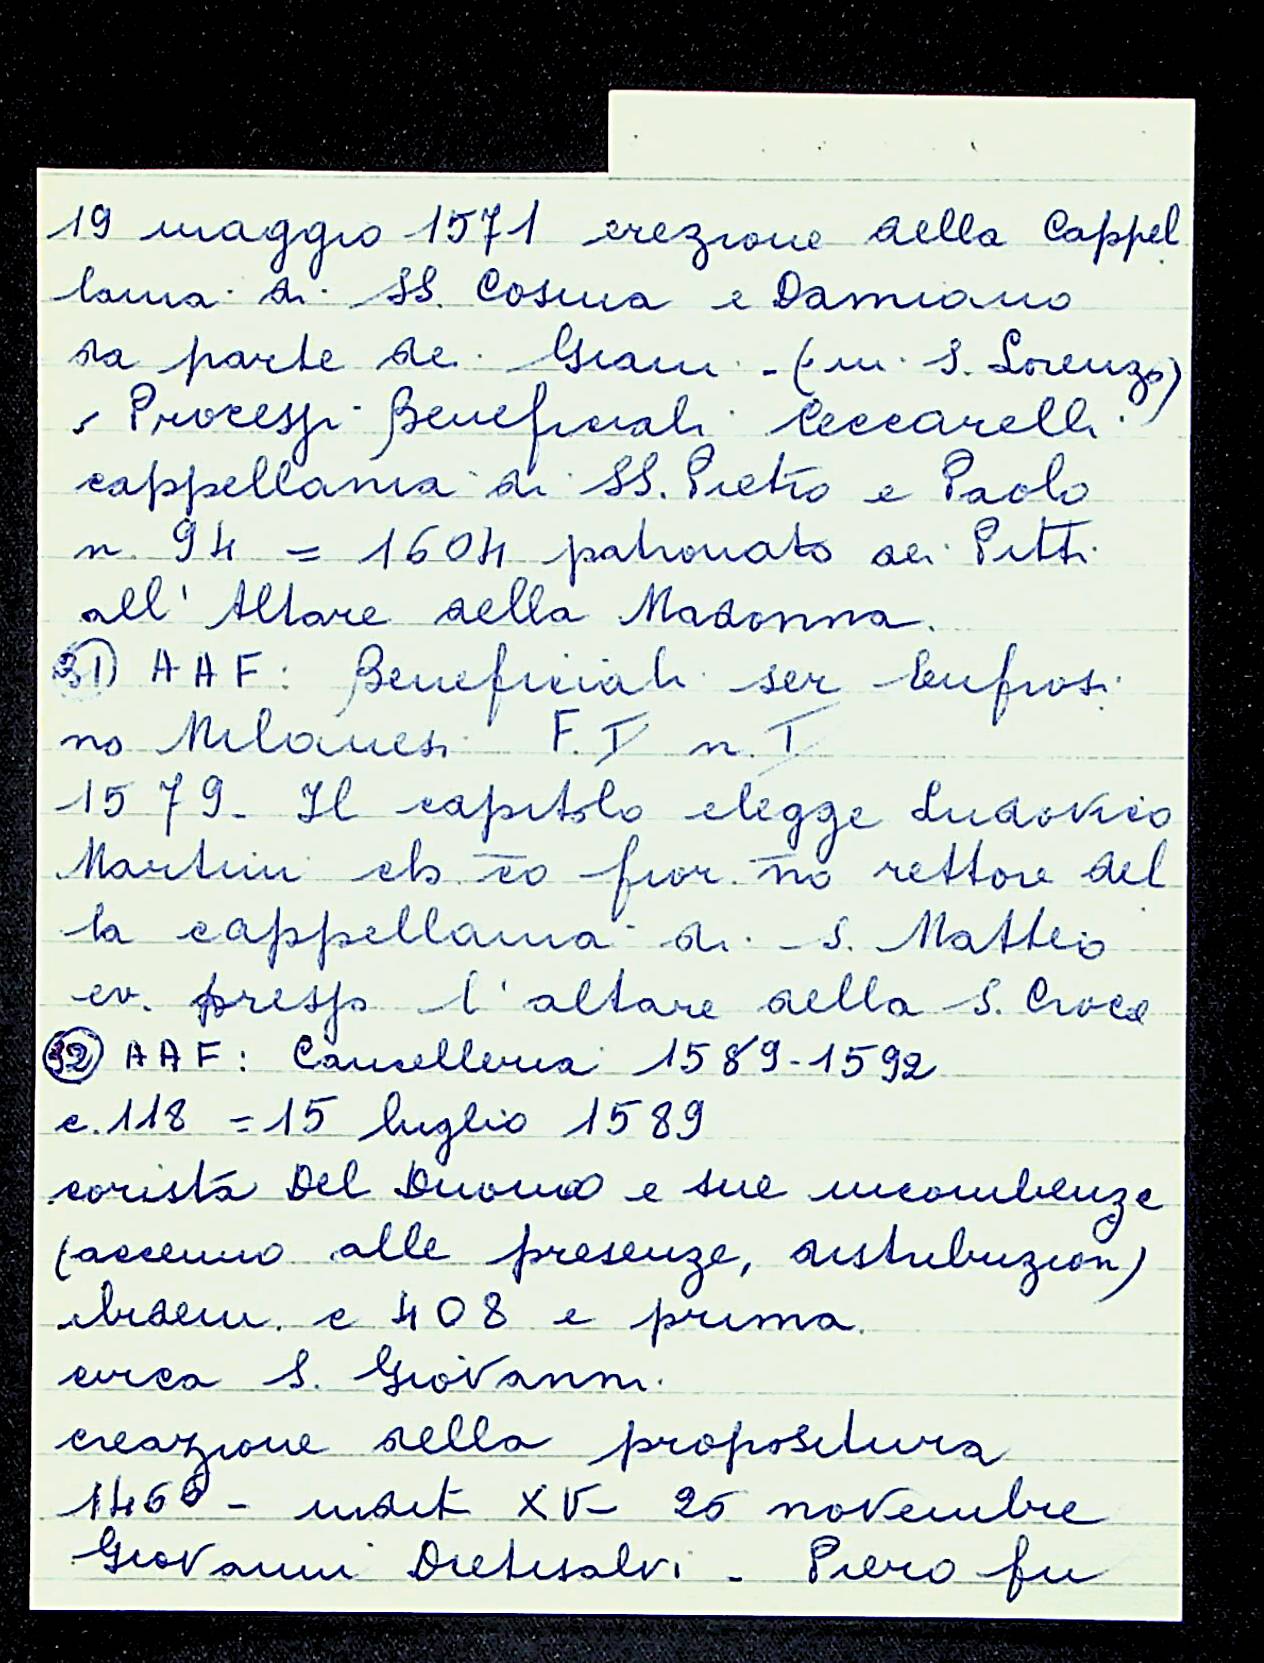 19 maggio 1571 erezione della Cappel
lania di SS. Cosma e Damiano
da parte dei Giani - (in S. Lorenzo)
Processi Beneficiali Ceccarelli
cappellania di SS. Pietro e Paolo
n. 94 = 1604 patronato dei Pitti
all'Altare della Madonna.
31) AAF: Beneficiali ser Eufrosi
no Milanesi F. I n. I
1579 - Il capitolo elegge Ludovico
Martini fior. no rettore del
la cappellania di S. Matteo
ev. presso l'altare della S. Croce
32) AAF: Cancelleria 1589-1592
c. 118 = 15 luglio 1589
corista Del Duomo e sue incombenze
(accenno alle presenze, distribuzioni)
ibidem. c 408 e prima.
circa S. Giovanni.
creazione della propositura
indit XV - 25 novembre
Giovanni Dietisalvi - Piero fu